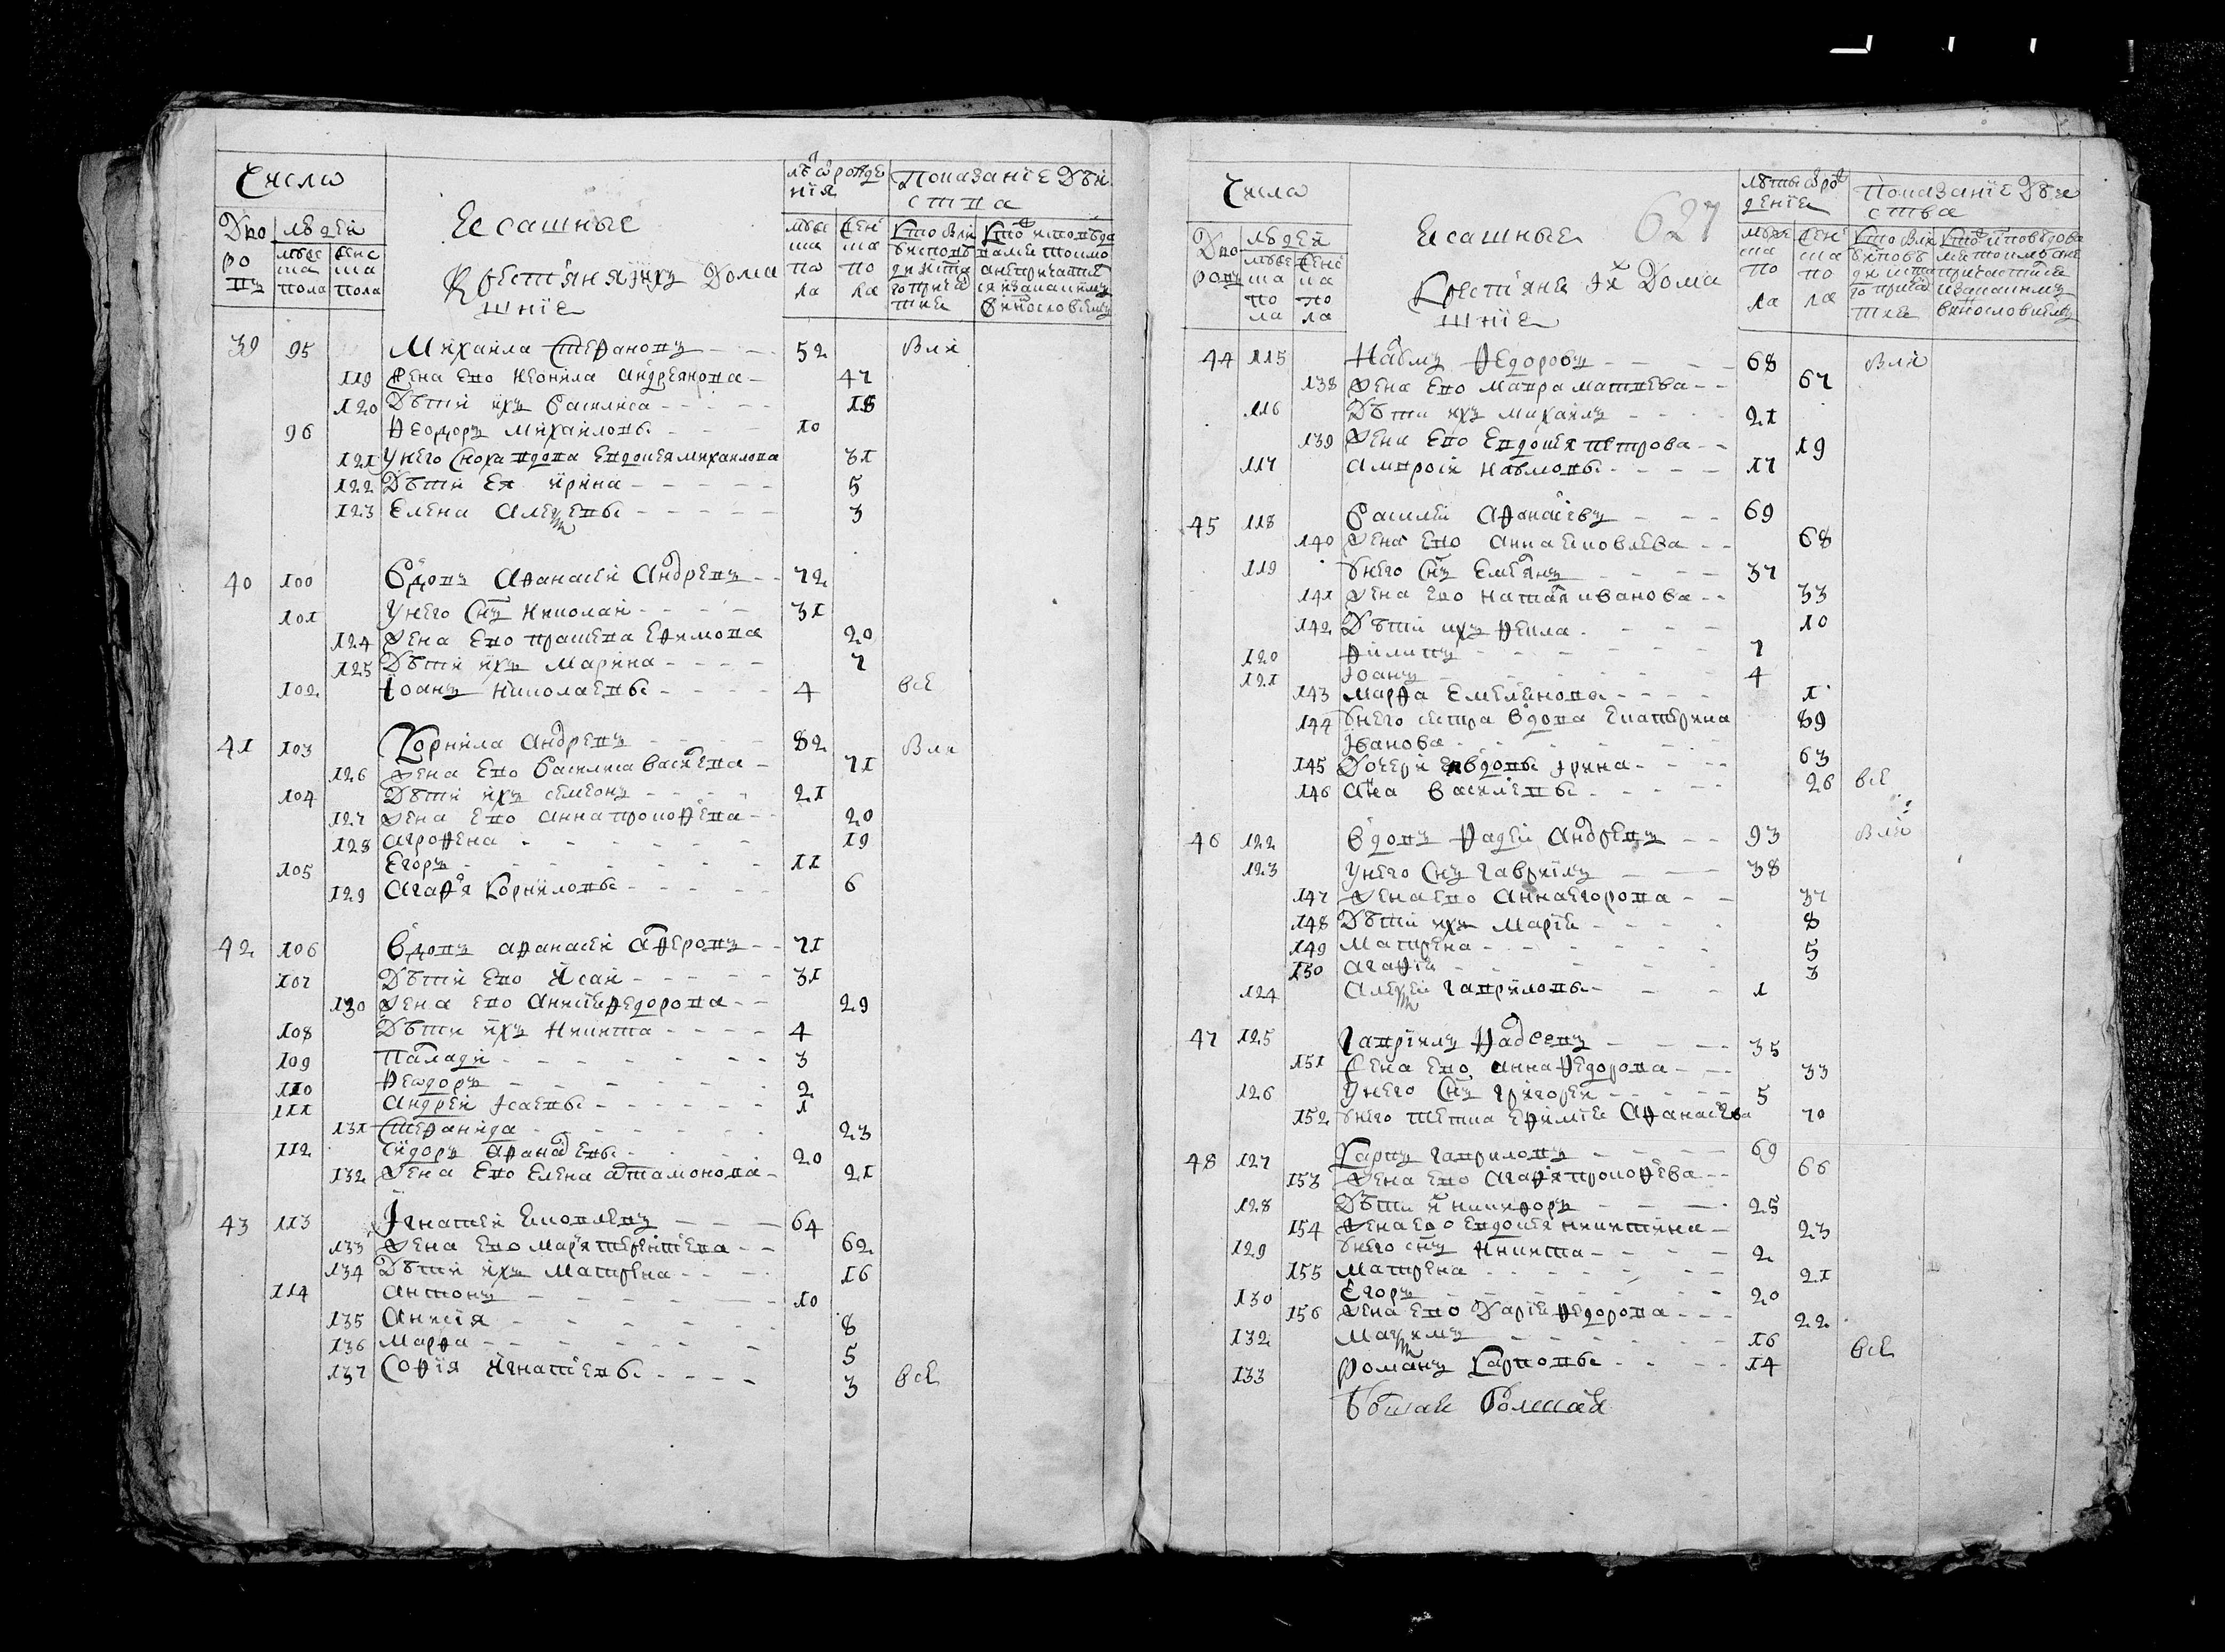 Число
Дворовъ
людей
мужеска пола
женска пола
Ясашные
Крестьяня ихъ домашніе
лѣта ѿ рожденія
мужеска пола
женска пола
Показаніе дѣйства
39 95 Михаила Стефановъ 52 были
119 Жена ево Неонила Андреянова 47
120 Дѣти ихъ Василиса 18
96 Ѳеодоръ Михаиловы 10
121 у него сноха вдова Евдокея Михаилова 31
122 Дѣти ея Ирина 5
123 Елена Алеѯѣевы 3
40 100 Вдовъ Афанасей Андреевъ 72
101 у него снъ Николай 31
124 Жена ево Прасковья Ефимова 20
125 Дѣти ихъ Марина 7
102 Іоанъ Николаевы 4 все
41 103 Корнила Андреевъ 82 были
126 Жена ево Василиса Васильева 71
104 Дѣти ихъ Семеонъ 21
127 Жена ево Анна Прокофева 20
128 Агрофена 19
105 Егоръ 11
129 Агафья Корниловы 6
42 106 Вдовъ Афанасей 71
107 Дѣти ево Исай 31
130 Жена ево Анисія Федорова 29
108 Дѣти ихъ Никита 4
109 Паладей 3
110 Ѳеодоръ 2
111 Андрей Исаевы 1
131 Стефанида 23
112 Сидоръ Афанасевы 20
132 Жена ево Елена Артамонова 21
43 113 Игнатей Яковлевъ 64
133 Жена ево Марья Терентева 62
134 Дѣти ихъ Матрена 16
114 Антонъ 10
135 Анисія 8
136 Марфа 5
137 Софія Игнатевы 3 все
627
Числа
Дворовъ
людей
мужеска пола
женска пола
Ясашные
Крестьяне ихъ домашніе
лѣты ѿ рожденіе
мужеска пола
женска пола
Показаніе дѣиства
44 115 Наумъ Федоровъ 68 были
138 Жена ево Мавра Матвева 67
116 Дѣти ихъ Михаилъ 21
139 Жена ево Евдокея Петрова 19
117 Амвросій Наумовы 17
45 118 Василей Афанасіевъ 69
140 Жена ево Анна Яковлева 68
119 у него снъ Емельянъ 37
141 Жена ево Наталья Иванова 33
142 Дѣти ихъ Фекла 10
120 Филипъ 7
121 Іоанъ 4
143 Марфа Емельянова 1
144 у него сестра вдова Екатерина Іванова 89
145 Дочери вдовы Ирина 63
146 Анна Василевы 26 все
46 122 Вдовъ Фадей Андреевъ 93 были
123 у него снъ Гавриилъ 38
147 Жена ево Анна Егорова 37
148 Дѣти ихъ Марія 8
149 Матрена 5
150 Агафія 3
124 Алеѯѣй Гавриловы 1
47 125 Гавріилъ Фадеевъ 35
151 Жена ево Анна Федорова 33
126 у него снъ Григорей 5
152 у него тетка Ефимія Афанасева 70
48 127 Карпъ Гавриловъ 69
153 Жена ево Агафья Прокофева 66
128 Дѣти Никифоръ 25
154 Жена ево Евдокея Никитина 23
129 у него снъ Никита 2
155 Матрена 21
130 Егоръ 20
156 Жена ево Дарія Федорова 22
132 Маѯимъ 16
133 Романъ Карповы 14 все